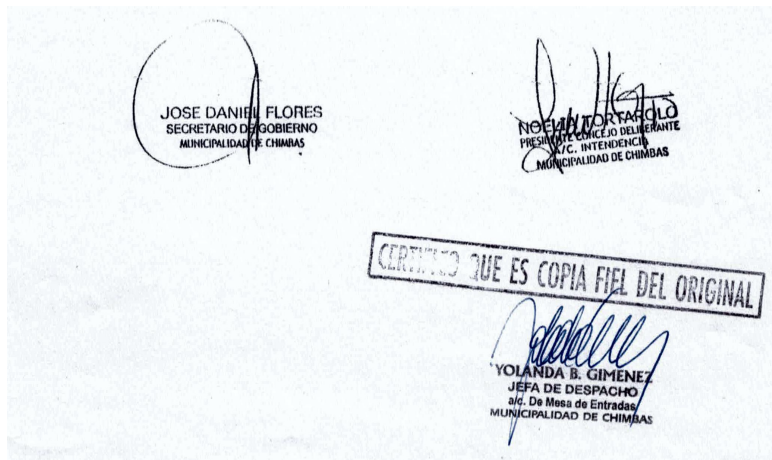 JOSE DANIEL FLORES
SECRETARIO DE GOBIERNO
MUNICIPALIDAD DE CHIMBAS
NOELIA TORTAROLO
PRESIDENTE CONCEJO DELIBERANTE
A/C. INTENDENCIA
MUNICIPALIDAD DE CHIMBAS
CERTIFICO QUE ES COPIA FIEL DEL ORIGINAL
YOLANDA B. GIMENEZ
JEFA DE DESPACHO
a/c. De Mesa de Entradas
MUNICIPALIDAD DE CHIMBAS